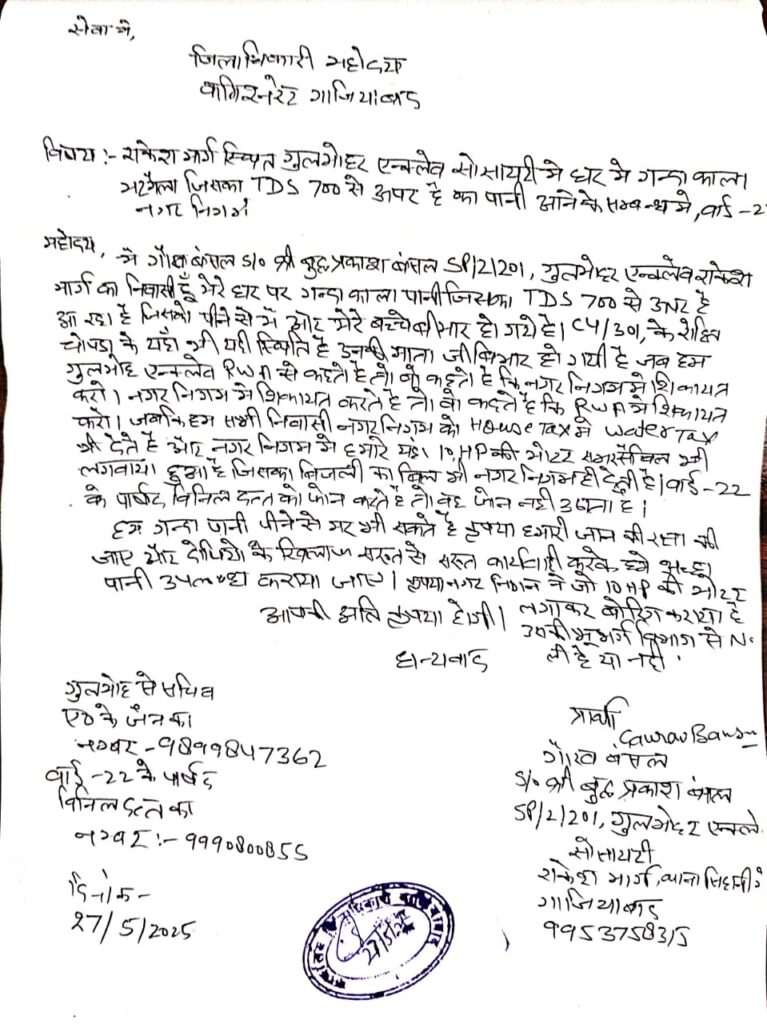 सेवा मे,
जिलाधिकारी महोदय
कमिश्नरेट गाजियाबाद
विषय :- राकेश मार्ग स्थित गुलमोहर एन्क्लेव सोसायटी मे घर मे गन्दा काला
मटमैला जिसका TDS 700 से ऊपर है का पानी आने के सम्बन्ध मे, वार्ड-2
नगर निगम
महोदय, मै गौरव बंसल S/o श्री बुद्ध प्रकाश बंसल SP/2/201, गुलमोहर एन्क्लेव राकेश
मार्ग का निवासी हूँ मेरे घर पर गन्दा काला पानी जिसका TDS 700 से उपर है
आ रहा है जिसको पीने से मैं और मेरे बच्चे बीमार हो गये है। C4/301, के
चोपड़ा के यहाँ भी यही स्थिति है उनकी माता जी बिमार हो गयी है जब हम
गुलमोहर एन्क्लेव RWA से कहते है तो वो कहते है कि नगर निगम मे शिकायत
करो। नगर निगम मे शिकायत करते है तो वो कहते है कि RWA मे शिकायत
करो। जबकि हम सभी निवासी नगर निगम को House Tax मे Water Tax
भी देते है और नगर निगम मे हमारे यहा 10 HP की मोटर समरसेबिल भी
लगवाया हुआ है जिसका बिजली का बिल भी नगर निगम ही देती है। वार्ड-22
के पार्षद विनिल दत्त को फोन करते है तो वह फोन नही उठाता है।
हम गन्दा पानी पीने से मर भी सकते है कृपया हमारी जान की रक्षा की
जाए और दोषियो के खिलाफ सख्त से सख्त कार्यवाही करके हमे अच्छा
पानी उपलब्ध कराया जाए। कृपया नगर निगम ने जो 10 HP की मोटर
लगाकर बोरिंग कराया है
आपकी अति कृपया होगी।
उसकी भूगर्भ विभाग से N
ली है या नही
धन्यवाद
गुलमोहर से सचिव
ए० के जैन का
नम्बर - 9899847362
वार्ड-22 के पार्षद
विनिल दत्त का
नम्बर :- 9990800855
दिनांक -
27/5/2025
प्रार्थी
Gaurav Bansal
गौरव बंसल
S/o श्री बुद्ध प्रकाश बंसल
SP/2/201, गुलमोहर एन्क्ले
सोसायटी
राकेश मार्ग, थाना सिहानी
गाजियाबाद
9953758315
कार्यालय जिलाधिकारी गाजियाबाद